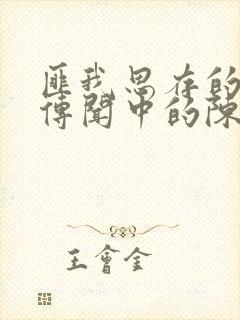 匪我思存的
傳聞中的陳
王會全